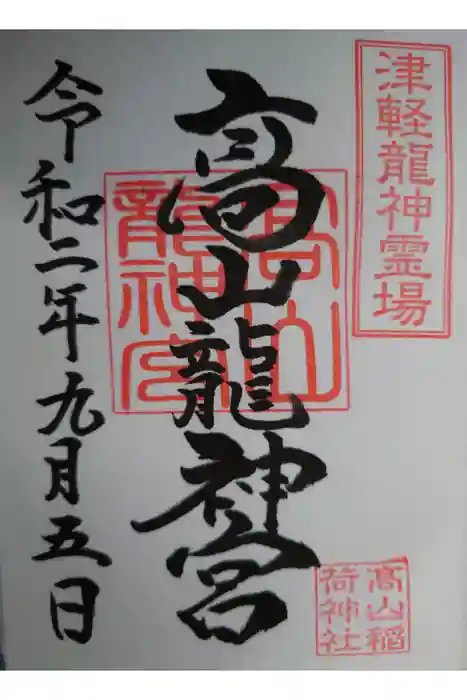 津軽龍神霊場
高山龍神宮
高山
龍神宮
高山稲
荷神社
令和二年九月五日